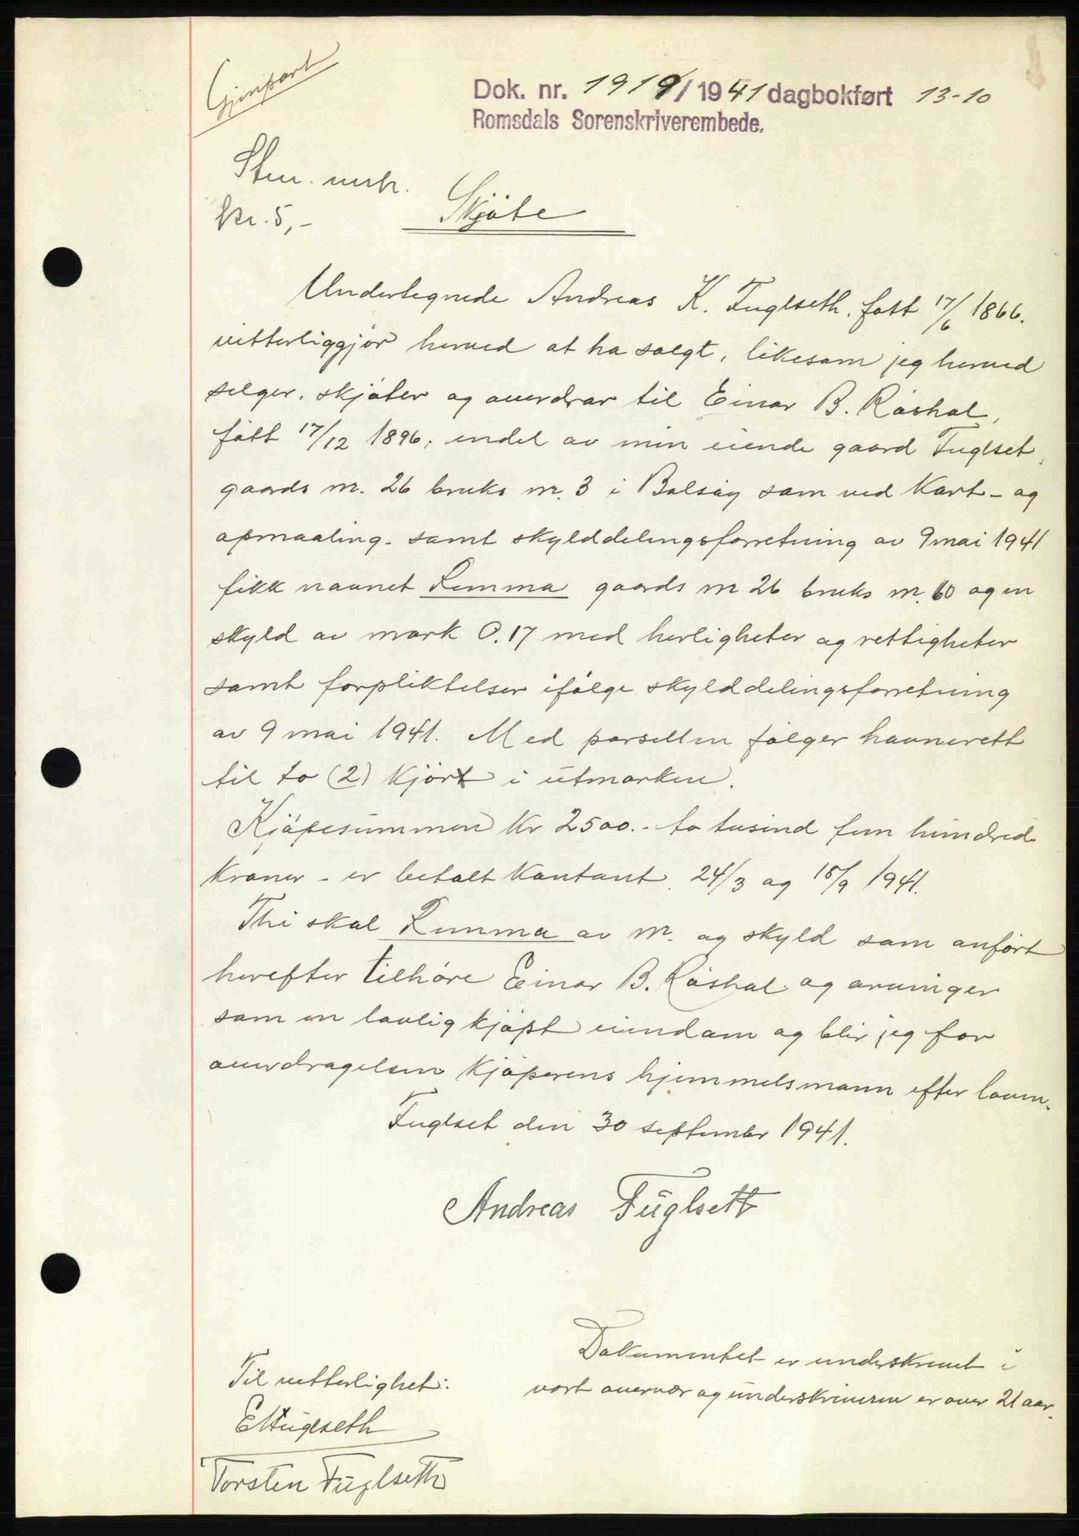 Gjenpart
Dok. nr. 1919/1941 dagbokført 13-10
Romsdals Sorenskriverembede.
Stm. mrk.
kr. 5,-
Skjøte
Undertegnede Andreas K. Fuglseth. født 17/6 1866.
vitterliggjør herved at ha solgt, likesom jeg herved
selger. skjøter og overdrar til Einar B. Røshol,
født 17/12 1896; endel av min eiende gaard Fuglset,
gaards nr. 26 bruks nr. 3 i Bolsøy som ved Kart- og
opmaaling. samt skylddelingsforretning av 9 mai 1941
fikk navnet Remma gaards nr 26 bruks nr. 60 og en
skyld av mark 0.17 med herligheter og rettigheter
samt forpliktelser ifølge skylddelingsforretning
av 9 mai 1941. Med parsellen følger havnerett
til to (2) kjørt i utmarken.
Kjøpesummen kr 2500.- to tusind fem hundred
kroner - er betalt kontant. 24/3 og 18/9 1941.
Thi skal Remma av nr. og skyld som anført
herefter tilhøre Einar B. Røshol og arvinger
som en lovlig kjøpt eiendom og blir jeg for
overdragelsen kjøperens hjemmelsmann efter loven.
Fuglset den 30 september 1941.
Andreas Fuglseth
Dokumentet er underskrevet i
vort overvær og underskriveren er over 21 aar.
Til vitterlighet:
Fuglseth
Torsten Fuglseth